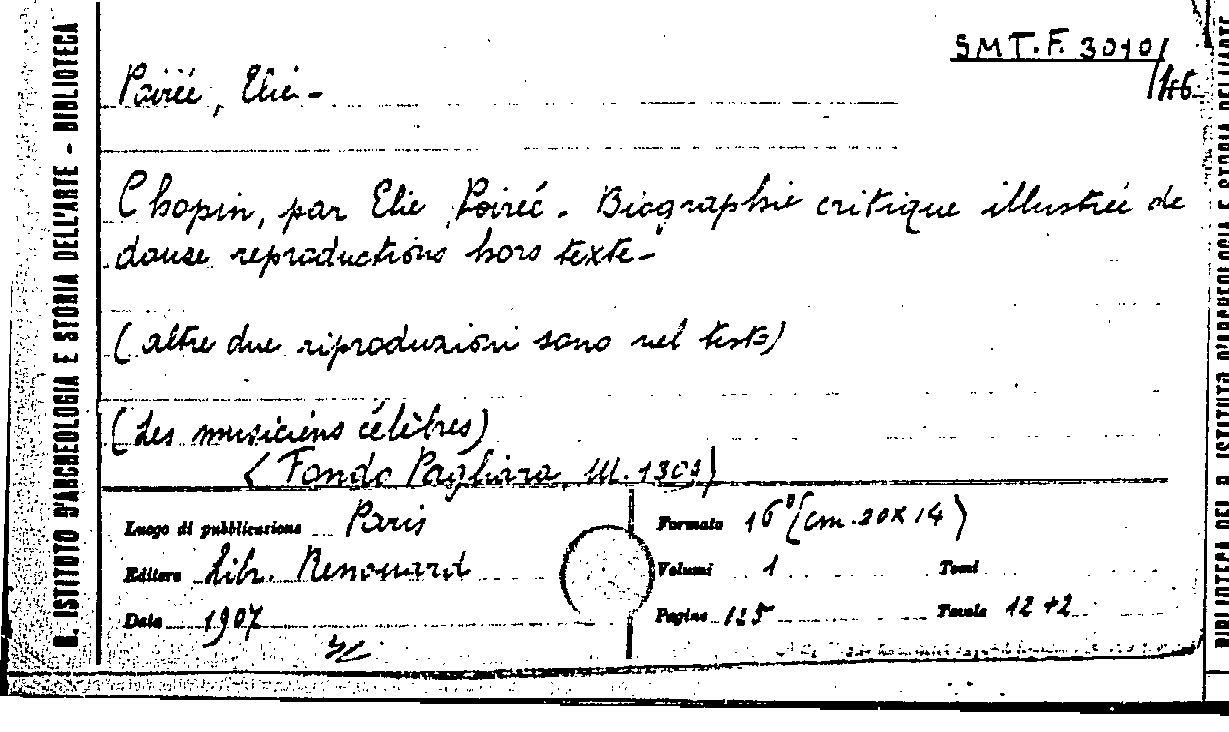 R. ISTITUTO D'ARCHEOLOGIA E STORIA DELL'ARTE - BIBLIOTECA
SMT.F. 3010/
Poirée, Elie -
Chopin, par Elie Poireé. Biographie critique illustrée de
douze reproductions hors texte -
(altre due riproduzioni sono nel testo)
(Les musiciens célèbres)
(Fondo Pagliara, M. 1309)
Luogo di pubblicazione Paris
Editore Libr. Renouard
Data 1907
Formato 16° (cm. 20 x 14)
Volumi 1 Tomi
Pagine 125 Tavole 12+2